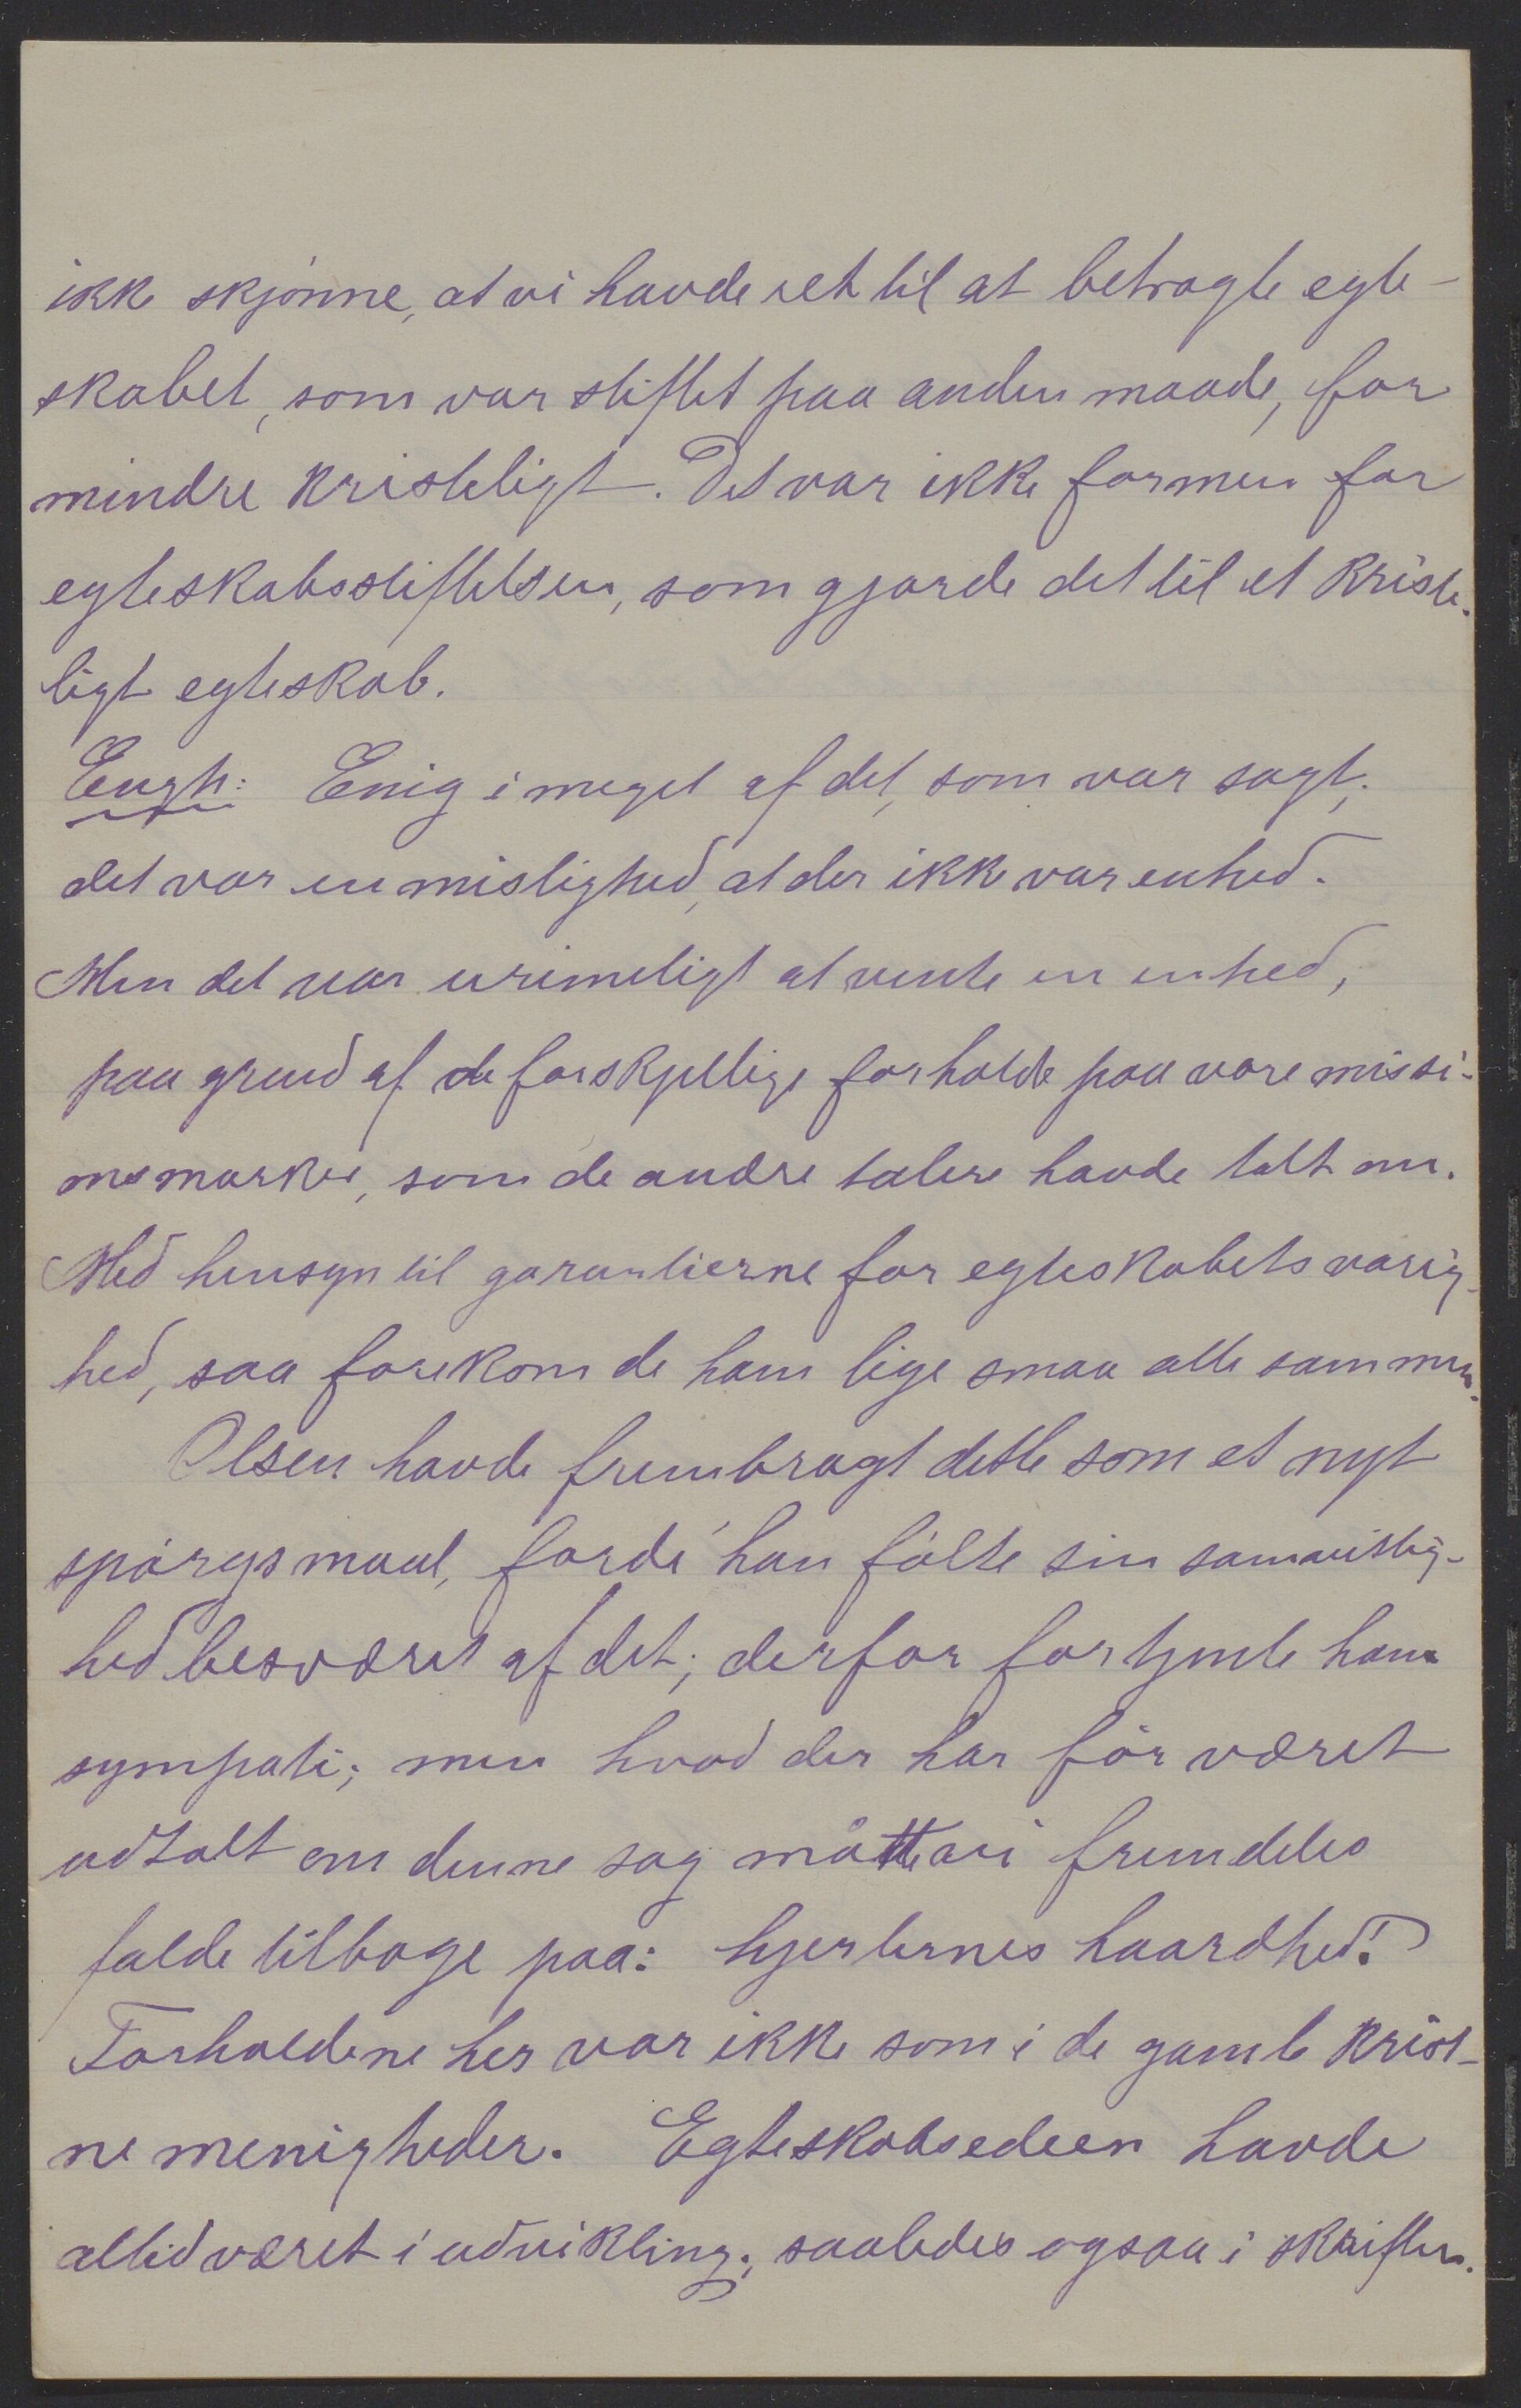 ikke skjönne, at vi havde ret til at betragte egte-
skabet, som var stiftet paa anden maade, for
mindre kristeligt. Det var ikke formen for
egteskabsstiftelsen, som gjorde det til et kriste-
ligt egteskab.
Engh: Enig i meget af det, som var sagt;
det var en mislighed, at der ikke var enhed.
Men det var urimeligt at vente en enhed,
paa grund af de forskjellige forholde paa vore missi-
onsmarker, som de andre talere havde talt om.
Med hensyn til garantierne for egteskabets varig-
hed, saa forekom de ham lige smaa alle sammen.
Olsen havde frembragt dette som et nyt
spörgsmaal, fordi han fölte sin samvittig-
hed besværet af det; derfor fortjente han
sympati; men hvad der har för været
udtalt om denne sag måtte vi fremdeles
falde tilbage paa: hjerternes haardhed!
Forholdene her var ikke som i de gamle krist-
ne menigheder. Egteskabsedeen havde
altid været i udvikling; saaledes ogsaa i skriften.